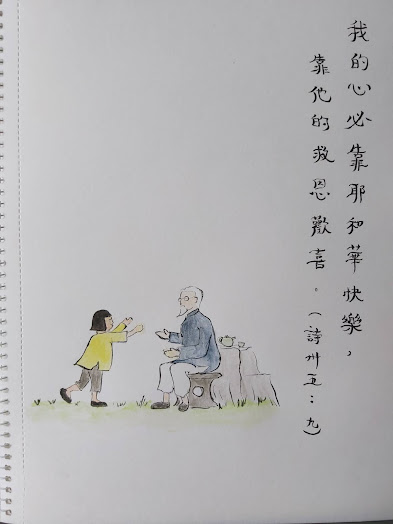 我的心必靠耶和華快樂，
靠他的救恩歡喜。（詩卅五：九）